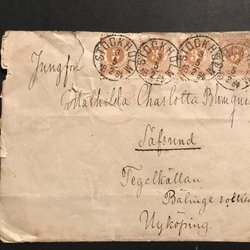 STOCKHOLM STOCKHOLM STOCKHOLM
Jungfru
Mathilda Charlotta Blomqvist
Säfsund
Tegelkällan
Bälinge socken
Nyköping.